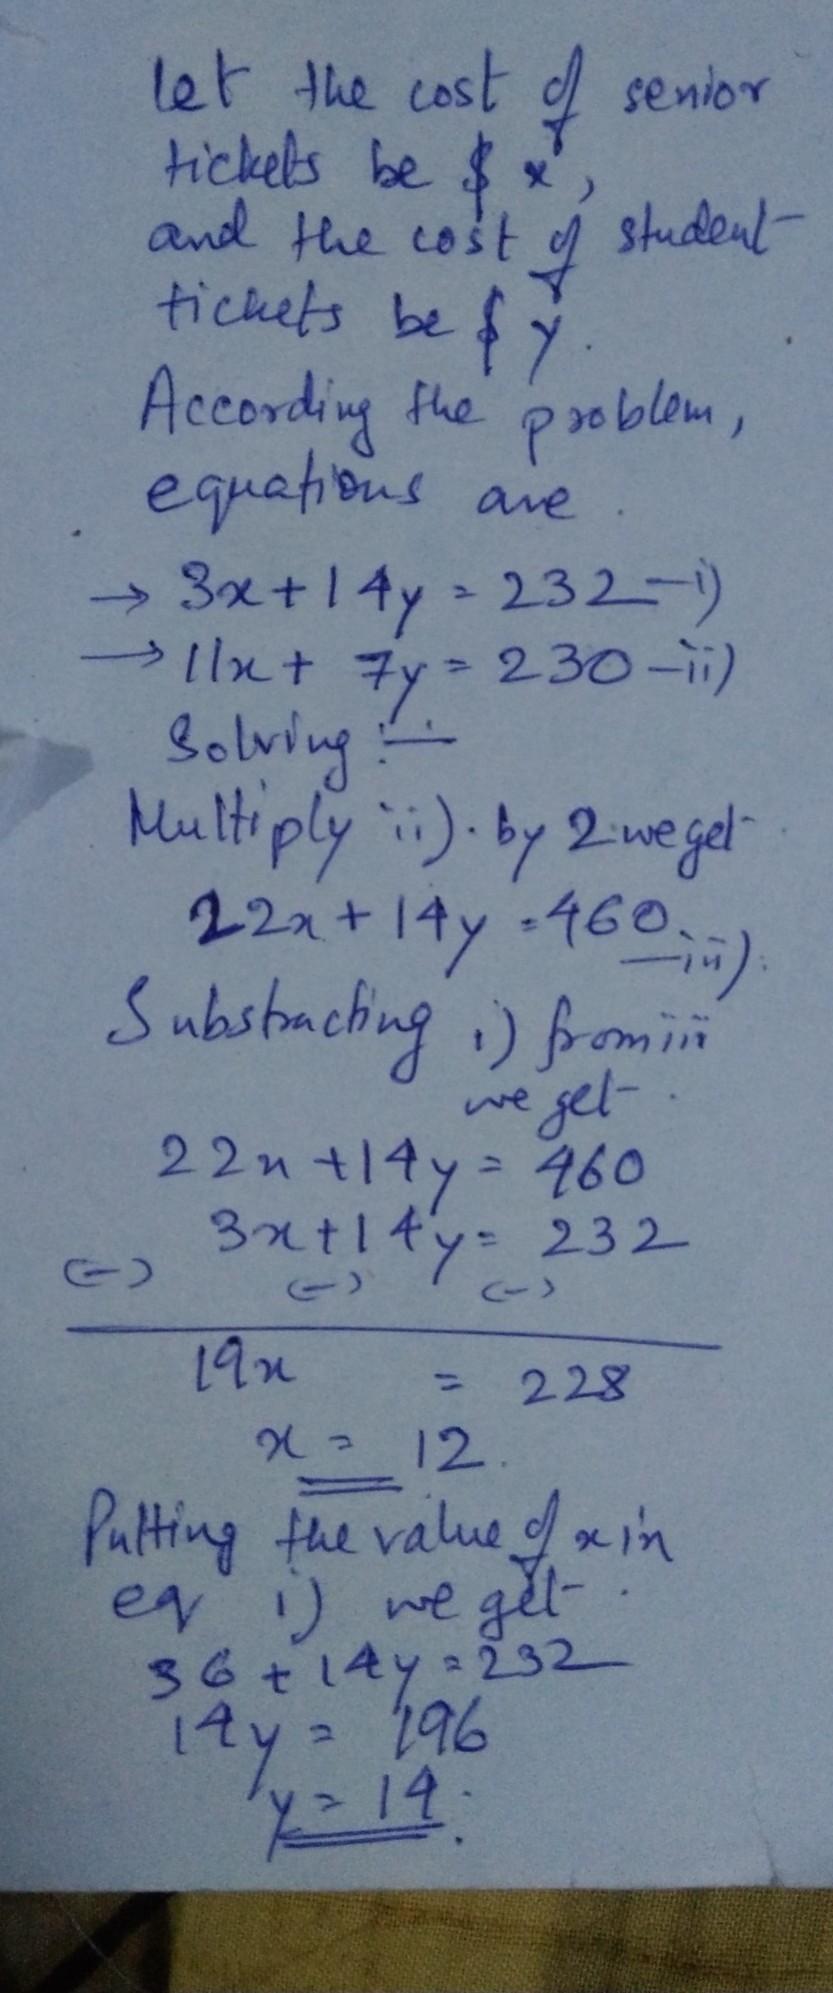 let the cost of senior
tickets be $ x,
and the cost of student
tickets be $ y.
According the problem,
equations are.
→ 3x + 14y = 232 — i)
→ 11x + 7y = 230 — ii)
Solving :—
Multiply ii). by 2 we get
22x + 14y = 460. — iii).
Substracting i) from iii
we get.
22x + 14y = 460
3x + 14y = 232
(-) (-) (-)
19x = 228
x = 12.
Putting the value of x in
eq i) we get.
36 + 14y = 232
14y = 196
y = 14.